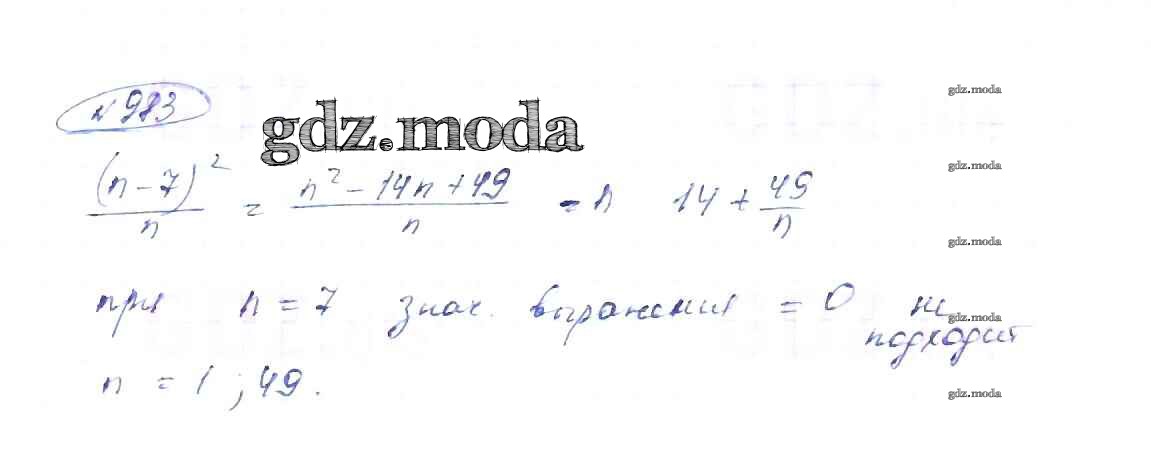 №983
gdz.moda
gdz.moda
(n-7)² / n = n² - 14n + 49 / n = n 14 + 49 / n
gdz.moda
gdz.moda
при n = 7 знач. выражения = 0 не подходит
gdz.moda
n = 1 ; 49.
gdz.moda